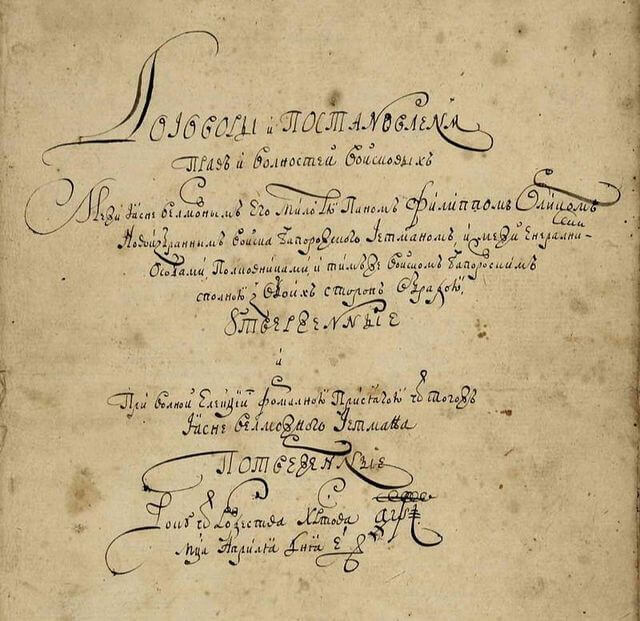 Договоры и Постановленїѧ
Правъ и волностей Войсковыхъ
Межи Ясне велможнымъ Его Милостю Паномъ Филиппомъ Орликомъ
Новоизбраннимъ Войска Запорожского Гетманомъ, и межи Енерални-
Особами, Полковниками, и тимъже Войскомъ Запорозскимъ
сполною з обоихъ сторонъ обрадою,
Утверженные
и
При волной Елекцїи формалною Присягою ѿ того
Ясне велможного Гетмана
Потверженные
Року ѿ Рожества Христова ҂аѱі
Мца Априлѧ Дня е҃